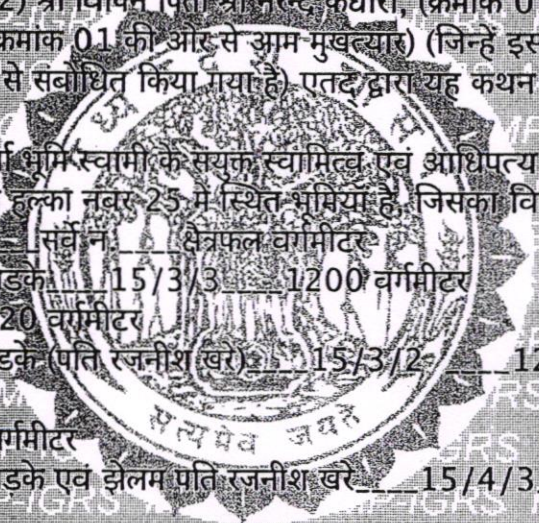 2) श्री विपिन पिता श्री नरेन्द्र कंधारी, (क्रमांक 0
क्रमांक 01 की ओर से आम मुखत्यार) (जिन्हें इस
से संबोधित किया गया है) एतद् द्वारा यह कथन
भूमि स्वामी के सयुक्त स्वामित्व एवं आधिपत्य
हल्का नंबर 25 मे स्थित भूमियॉ है, जिसका वि
सर्वे न.____क्षेत्रफल वर्गमीटर
डके____15/3/3____1200 वर्गमीटर
20 वर्गमीटर
डके (पति रजनीश खरे)____15/3/2____12
सत्यमेव जयते
र्गमीटर
ड़के एवं झेलम पति रजनीश खरे____15/4/3